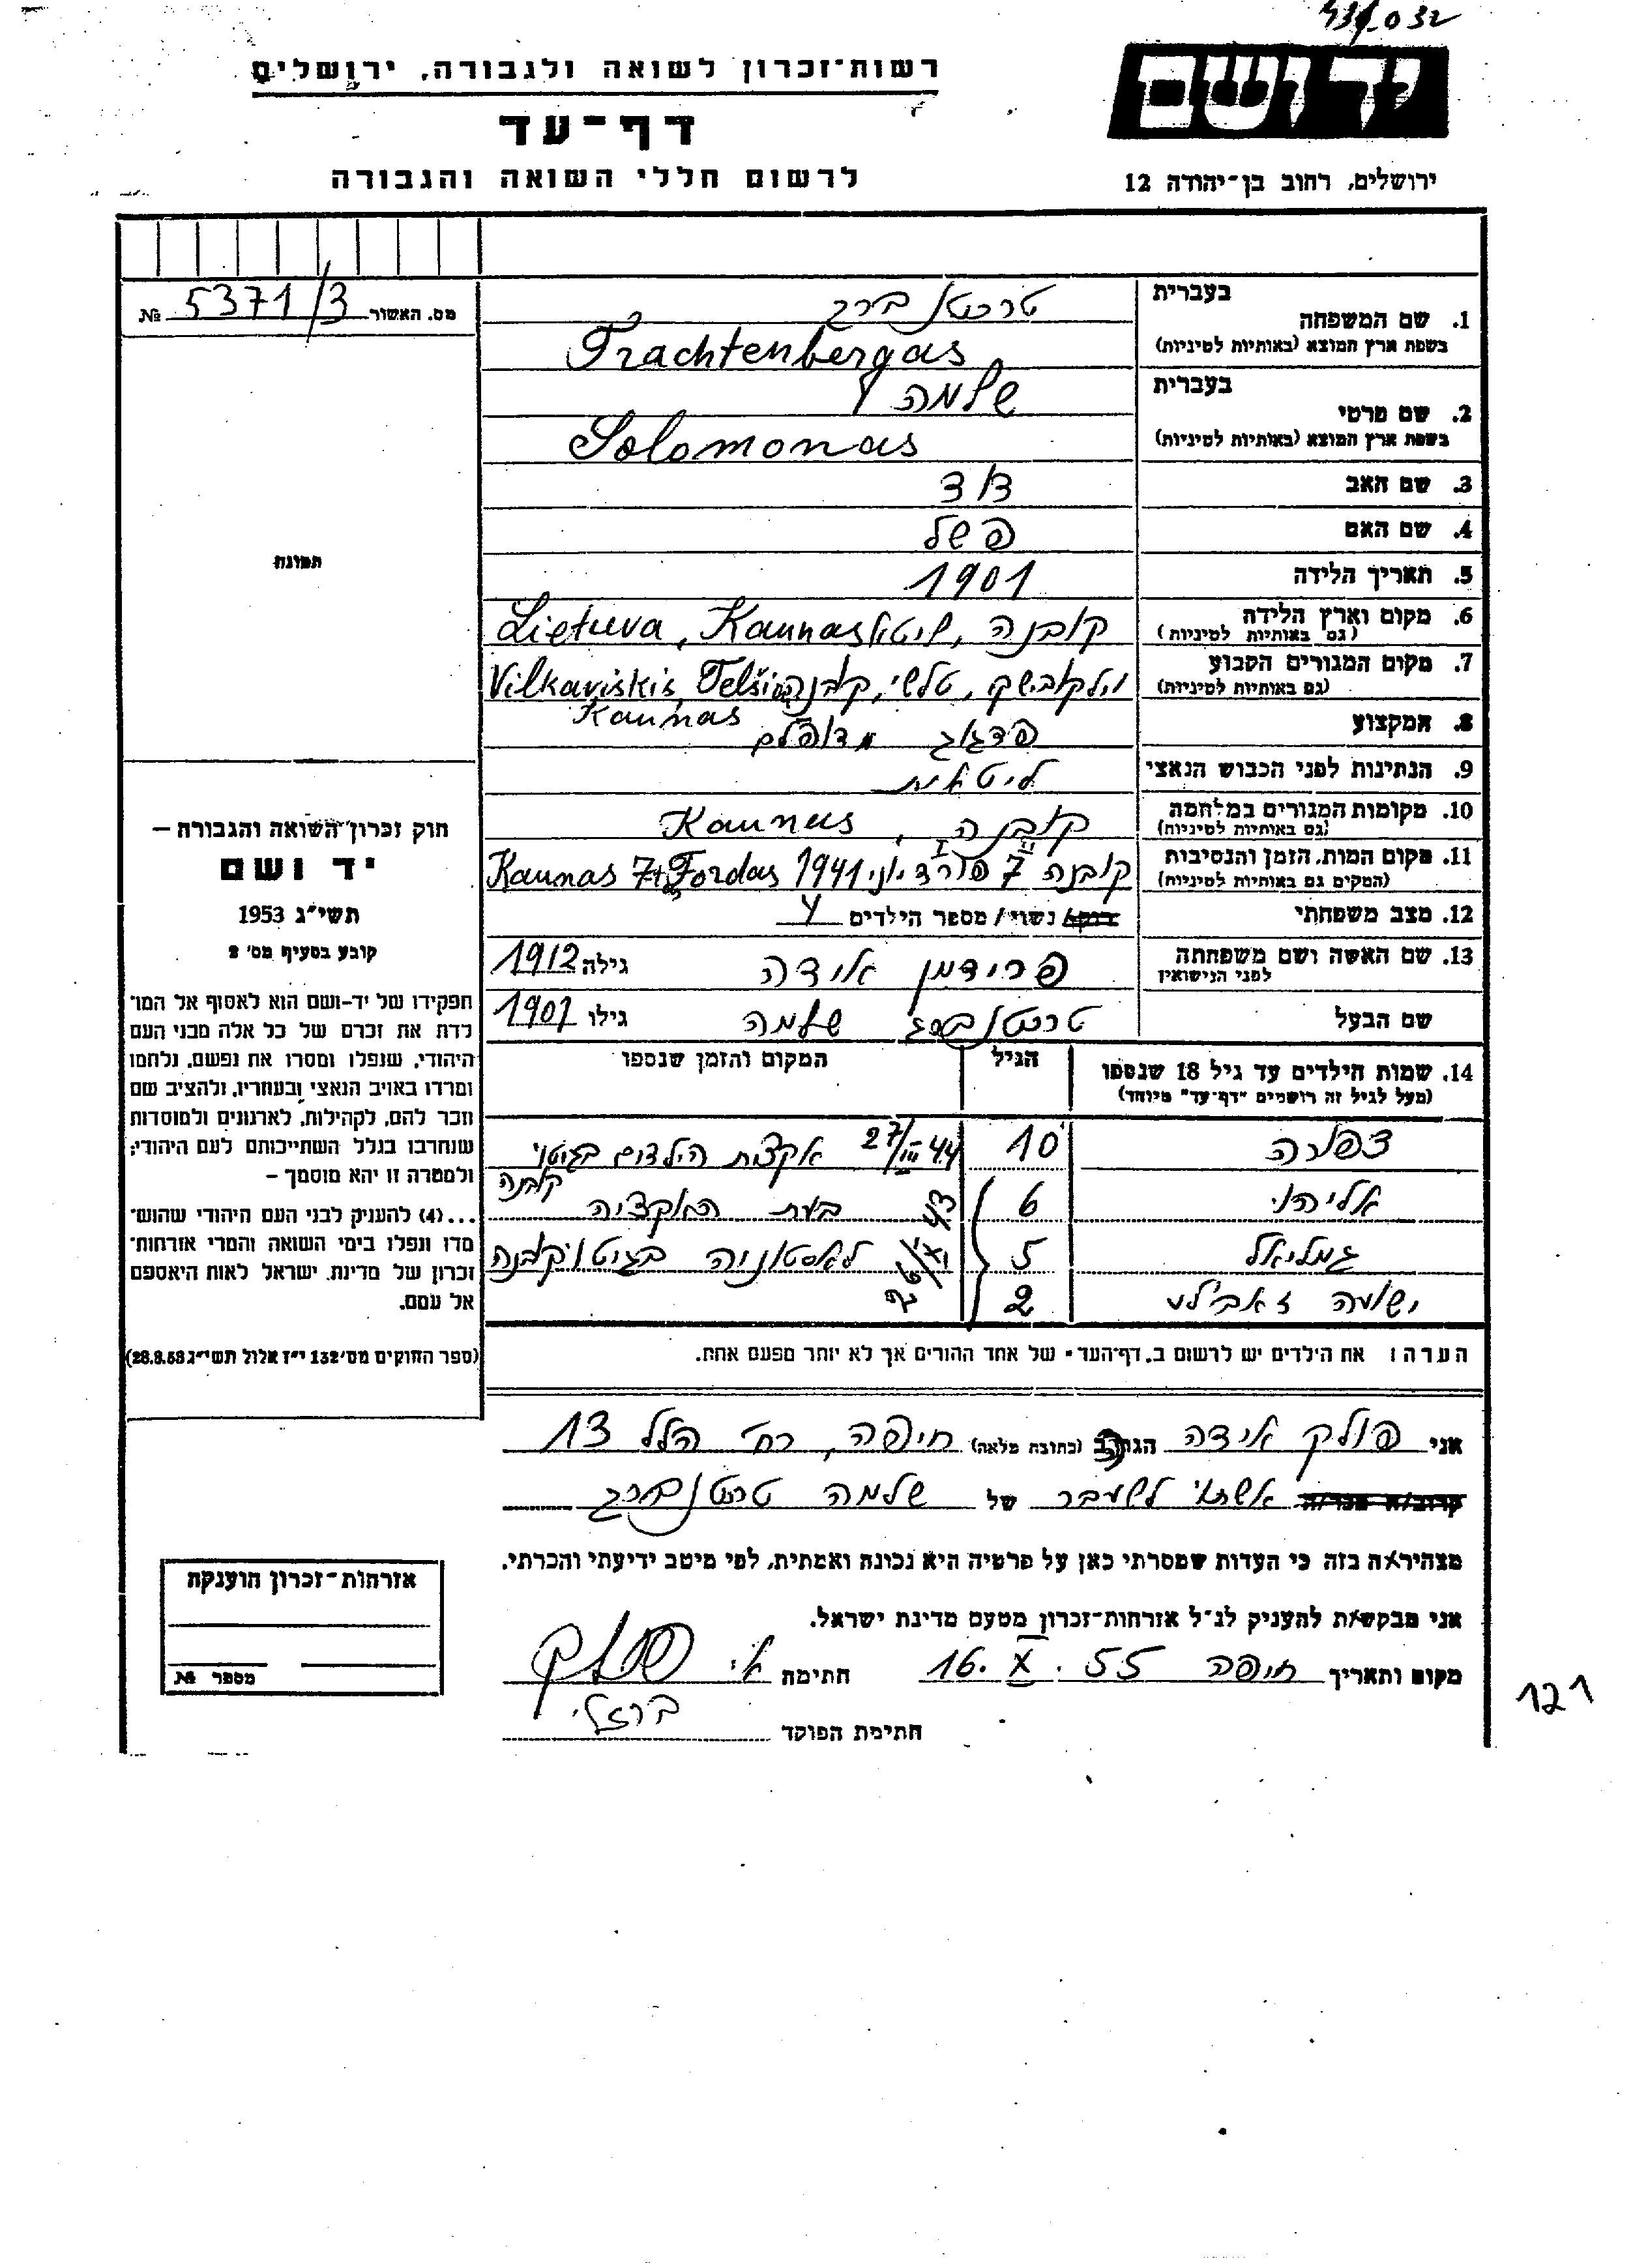 רשות־זכרון לשואה ולגבורה, ירושלים
דף־עד
לרשום חללי השואה והגבורה
ידושם
ירושלים, רחוב בן־יהודה 12
מס. האשור 5371/3 №
תמונה
בעברית
1. שם המשפחה טרכטנברג
בשפת ארץ המוצא (באותיות לטיניות) Trachtenbergas
בעברית שלמה
2. שם פרטי
בשפת ארץ המוצא (באותיות לטיניות) Solomonas
3. שם האב דוד
4. שם האם פשל
5. תאריך הלידה 1901
6. מקום וארץ הלידה קובנה, ליטא Lietuva, Kaunas
(גם באותיות לטיניות)
7. מקום המגורים הקבוע וילקובישקי, טלשי, קובנה Vilkaviskis, Telšiai
(גם באותיות לטיניות) Kaunas
8. המקצוע פדגוג מדופלם
9. הנתינות לפני הכבוש הנאצי ליטאית
10. מקומות המגורים במלחמה קובנה, Kaunas
(גם באותיות לטיניות)
11. מקום המות, הזמן והנסיבות קובנה 7 פורד יוני 1941 Kaunas 7tas Fordas
(המקום גם באותיות לטיניות)
12. מצב משפחתי רווק/ נשוי/ מספר הילדים 4
13. שם האשה ושם משפחתה פרידמן אידה גילה 1912
לפני הנישואין
שם הבעל טרכטנברג שלמה גילו 1901
14. שמות הילדים עד גיל 18 שנספו הגיל המקום והזמן שנספו
(מעל לגיל זה רושמים "דף־עד" מיוחד)
צפורה 10 27/III 44 אקצית הילדים בגיטו
קובנה
אליהו 6 בעת האקציה
גמליאל 5 26/X 43 לאסטוניה בגיטו קובנה
2
הערה: את הילדים יש לרשום ב„דף־העד" של אחד ההורים אך לא יותר מפעם אחת.
חוק זכרון השואה והגבורה –
יד ושם
תשי"ג 1953
קובע בסעיף מס' 2
תפקידו של יד־ושם הוא לאסוף אל המו־
לדת את זכרם של כל אלה מבני העם
היהודי, שנפלו ומסרו את נפשם, נלחמו
ומרדו באויב הנאצי ובעוזריו, ולהציב שם
וזכר להם, לקהילות, לארגונים ולמוסדות
שנחרבו בגלל השתייכותם לעם היהודי;
ולמטרה זו יהא מוסמך –
...(4) להעניק לבני העם היהודי שהוש־
מדו ונפלו בימי השואה והמרי אזרחות־
זכרון של מדינת ישראל לאות היאספם
אל עמם.
(ספר החוקים מס' 132 י"ז אלול תשי"ג 28.8.53)
אני פולק אידה הגר/ה (כתובת מלאה) חיפה, רח' הלל 13
קרוב/ה מכר/ה אשתו לשעבר של שלמה טרכטנברג
מצהיר/ה בזה כי העדות שמסרתי כאן על פרטיה היא נכונה ואמתית, לפי מיטב ידיעתי והכרתי.
אני מבקש/ת להעניק לנ"ל אזרחות־זכרון מטעם מדינת ישראל.
מקום ותאריך חיפה 16.X.55 חתימה אי פולק
חתימת הפוקד ברזלי
אזרחות־זכרון הוענקה
מספר №
121